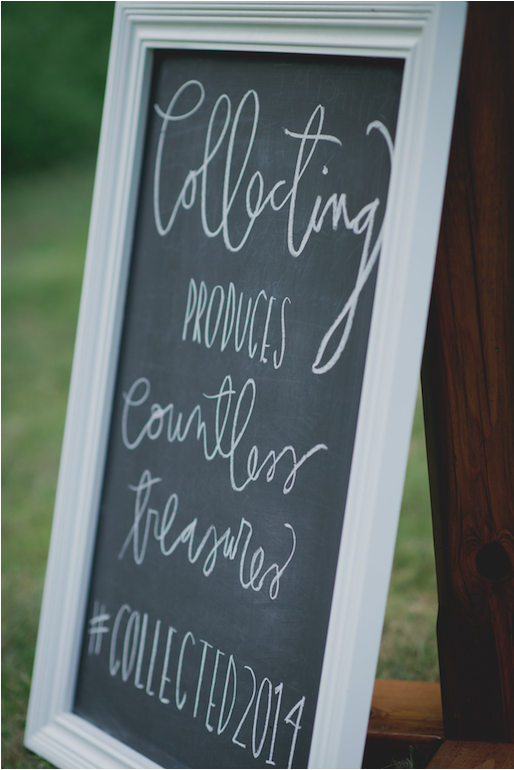 Collecting
PRODUCES
countless
treasures
#COLLECTED2014